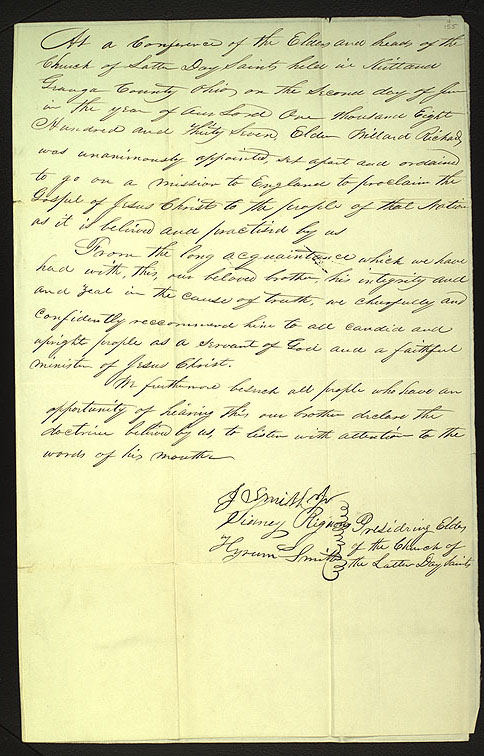 155
At a Conference of the Elders and heads of the
Church of Latter Day Saints held in Kirtland
Geauga County Ohio, on the second day of June
in the year of Our Lord One thousand Eight
Hundred and Thirty Seven, Elder Willard Richards,
was unanimously appointed set apart and ordained
to go on a mission to England to proclaim the
Gospel of Jesus Christ to the people of that Nation
as it is believed and practised by us
From the long acquaintance which we have
had with, this, our beloved brother, his integrity and
and Zeal in the cause of truth, we cheerfully and
Confidently reccommend him to all candid and
upright people as a servant of God and a faithful
minister of Jesus Christ.
We furthermore beseech all people who have an
opportunity of hearing this our brother declare the
doctrine believed by us, to listen with attention to the
words of his mouth
J Smith Jr
Sidney Rigdon
Hyrum Smith
Presidring Elders
of the Church of
the Latter Day Saints